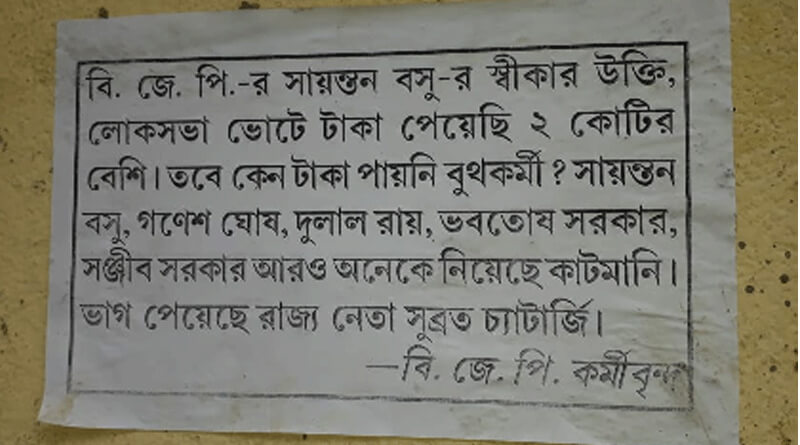 বি. জে. পি.-র সায়ন্তন বসু-র স্বীকার উক্তি,
লোকসভা ভোটে টাকা পেয়েছি ২ কোটির
বেশি। তবে কেন টাকা পায়নি বুথকর্মী ? সায়ন্তন
বসু, গণেশ ঘোষ, দুলাল রায়, ভবতোষ সরকার,
সঞ্জীব সরকার আরও অনেকে নিয়েছে কাটমানি।
ভাগ পেয়েছে রাজ্য নেতা সুব্রত চ্যাটার্জি।
—বি. জে. পি. কর্মীবৃন্দ